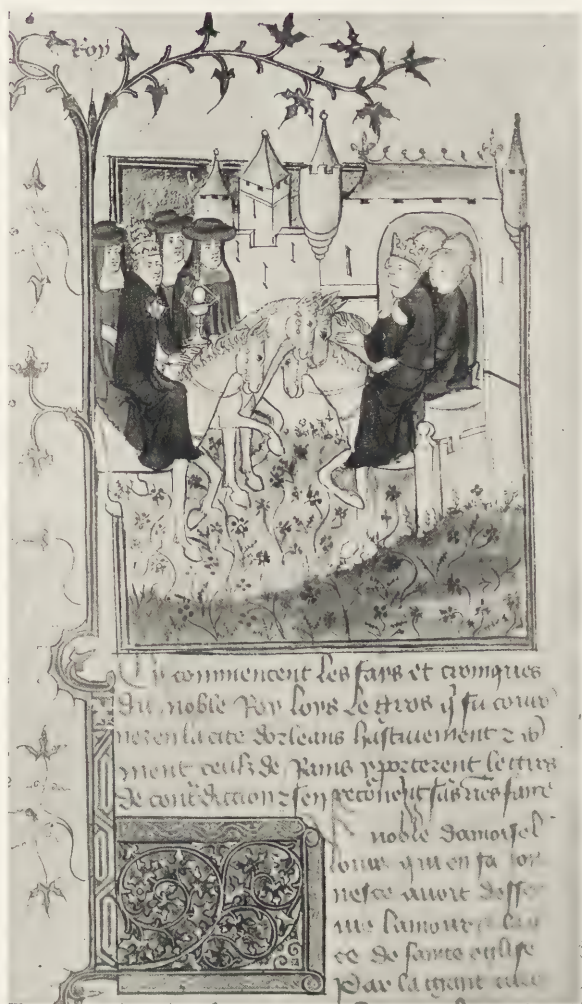 Roy
Cy commencent les fays et croniques
du noble Roy loys le gros q̃ fu couron
nez en la cite dorleans hastivement
ment ceulx de Rains apporterent lettres
de contdiction sen sans riens faire
noble damoisel
loys qui en sa jo
nesce avoit desser
vie lamour
ce de saincte eglise
Par la grant